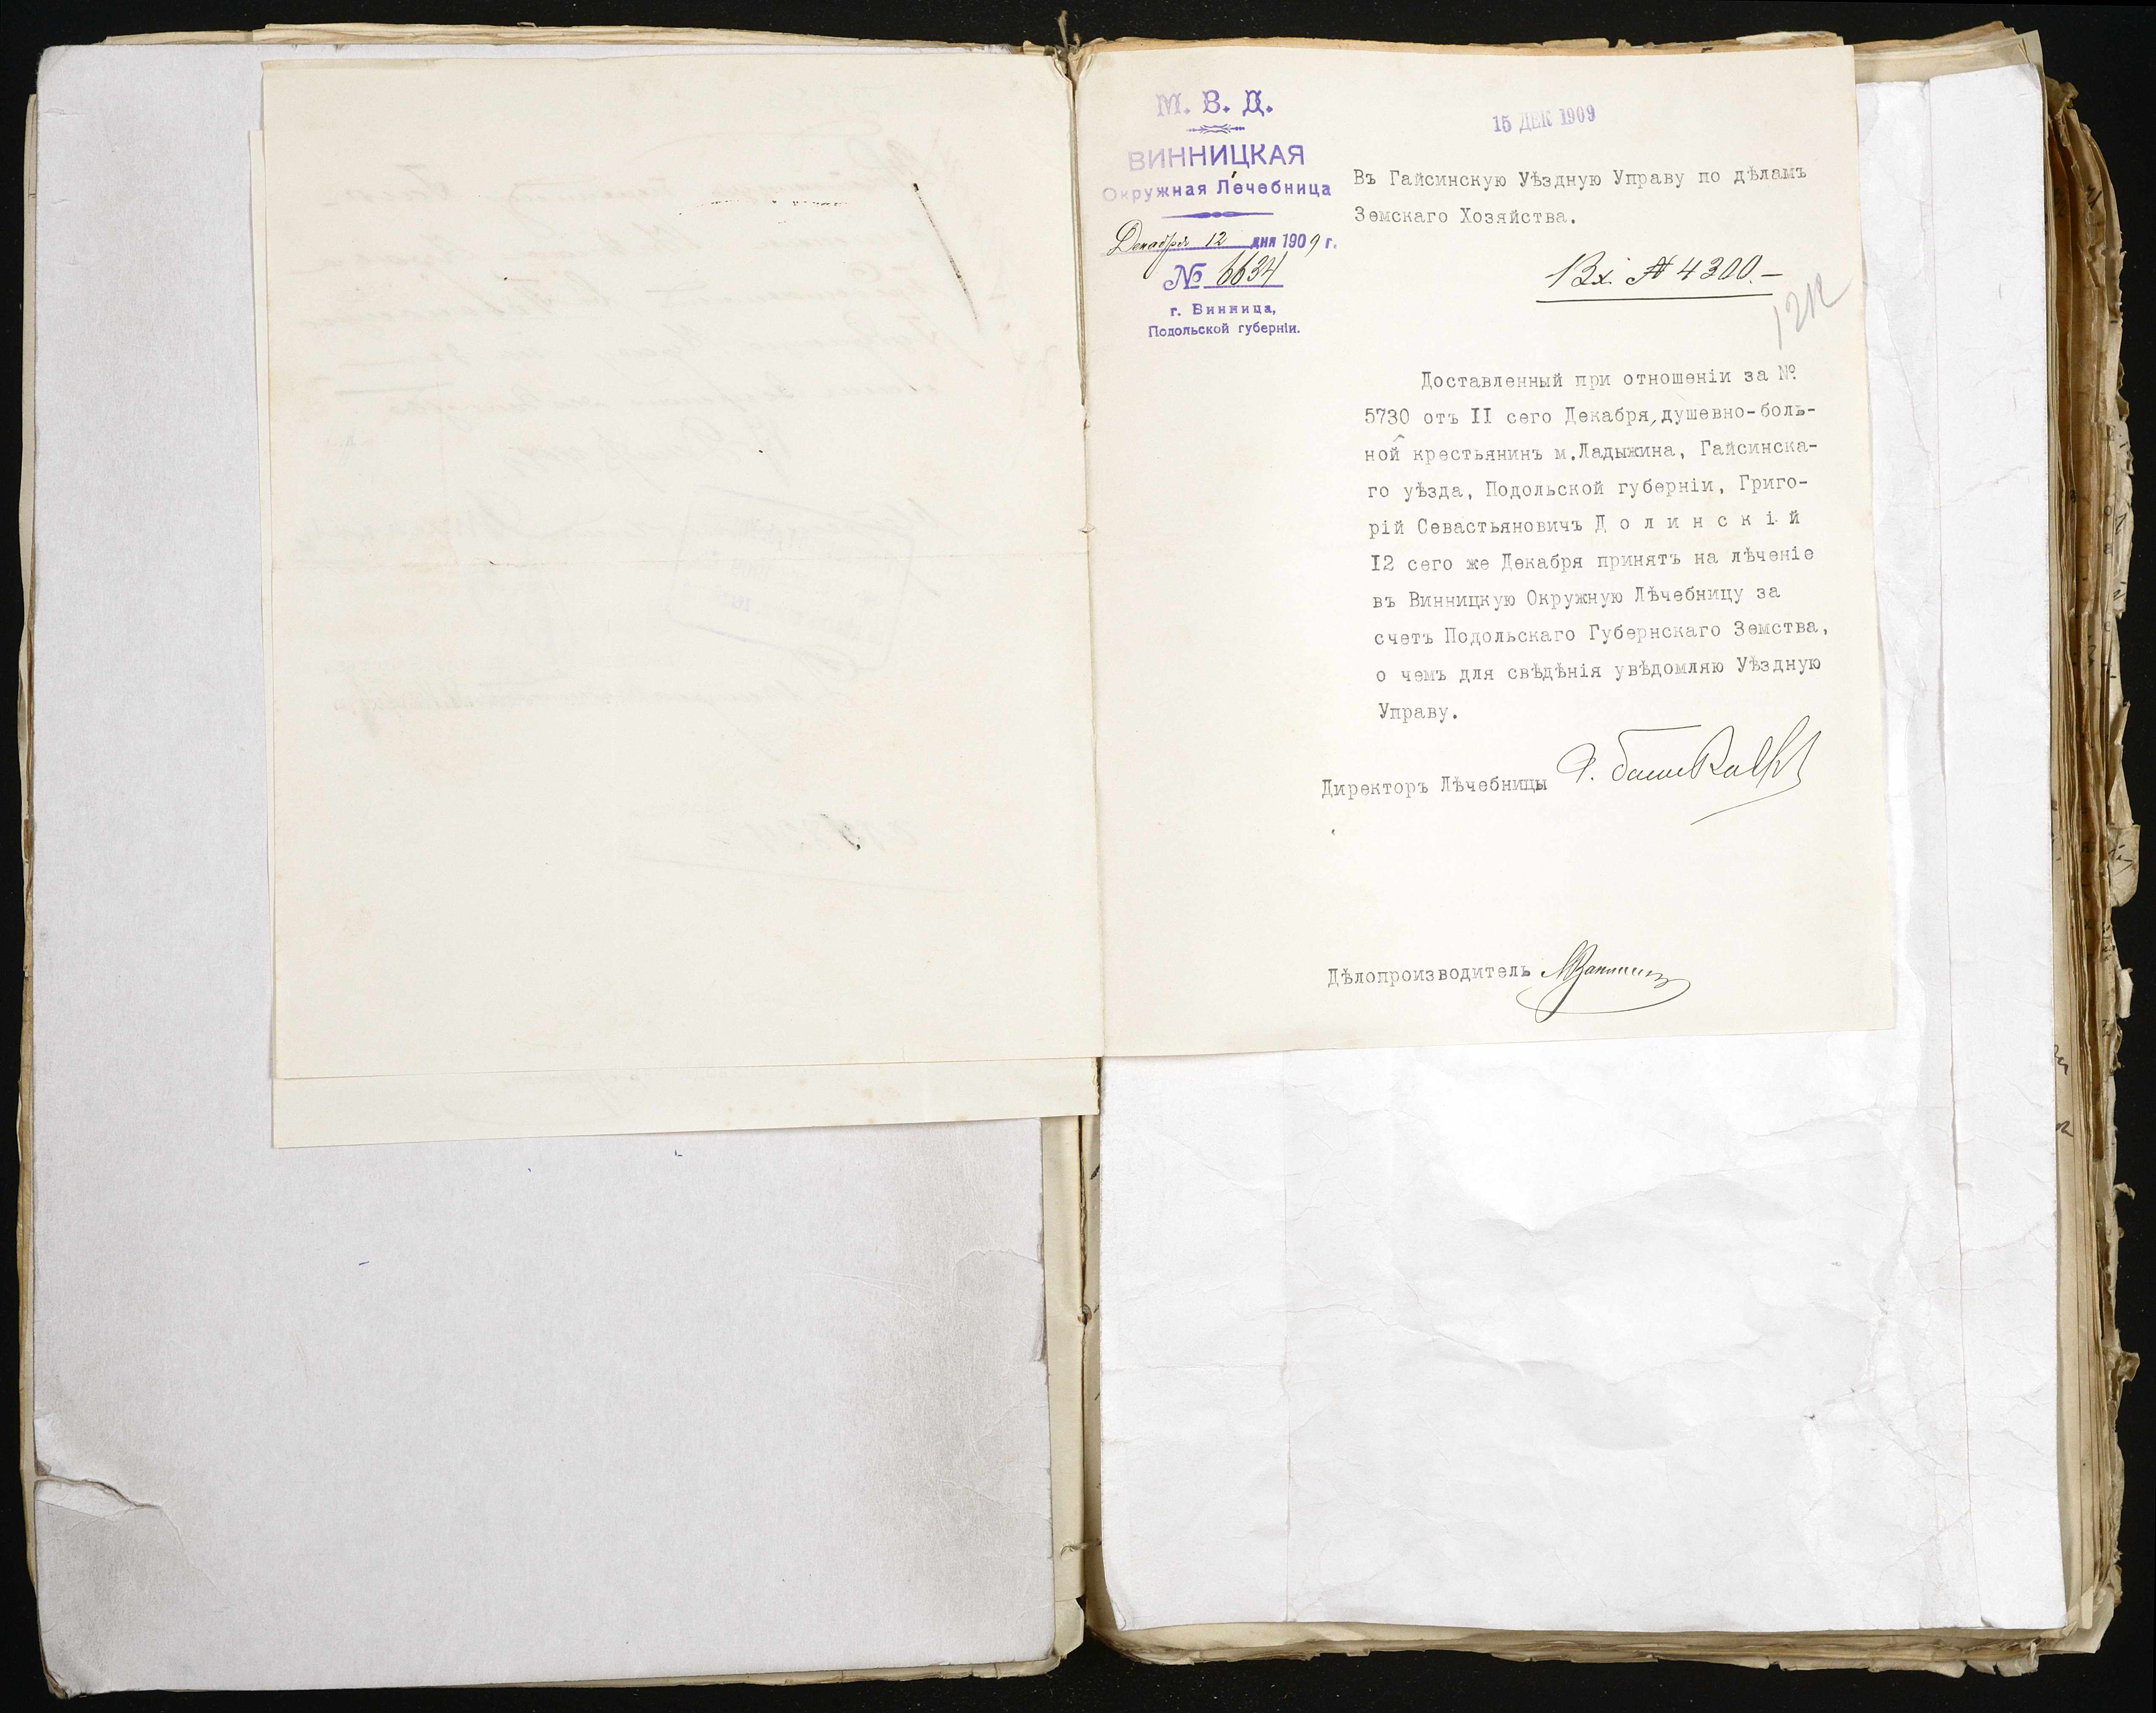 М. В. Д.
ВИННИЦКАЯ
Окружная Лечебница
Декабря 12 дня 1909 г.
№ 6634
г. Винница,
Подольской губерніи.
15 ДЕК 1909
Въ Гайсинскую Уѣздную Управу по дѣламъ
Земскаго Хозяйства.
Вх. № 4300.—
Доставленный при отношеніи за №
5730 отъ II сего Декабря, душевно-боль-
ной крестьянинъ м.Ладыжина, Гайсинска-
го уѣзда, Подольской губерніи, Григо-
рій Севастьяновичъ Д о л и н с к і й
I2 сего же Декабря принятъ на лѣченіе
въ Винницкую Окружную Лѣчебницу за
счетъ Подольскаго Губернскаго Земства,
о чемъ для свѣдѣнія увѣдомляю Уѣздную
Управу.
Директоръ Лѣчебницы
Дѣлопроизводитель